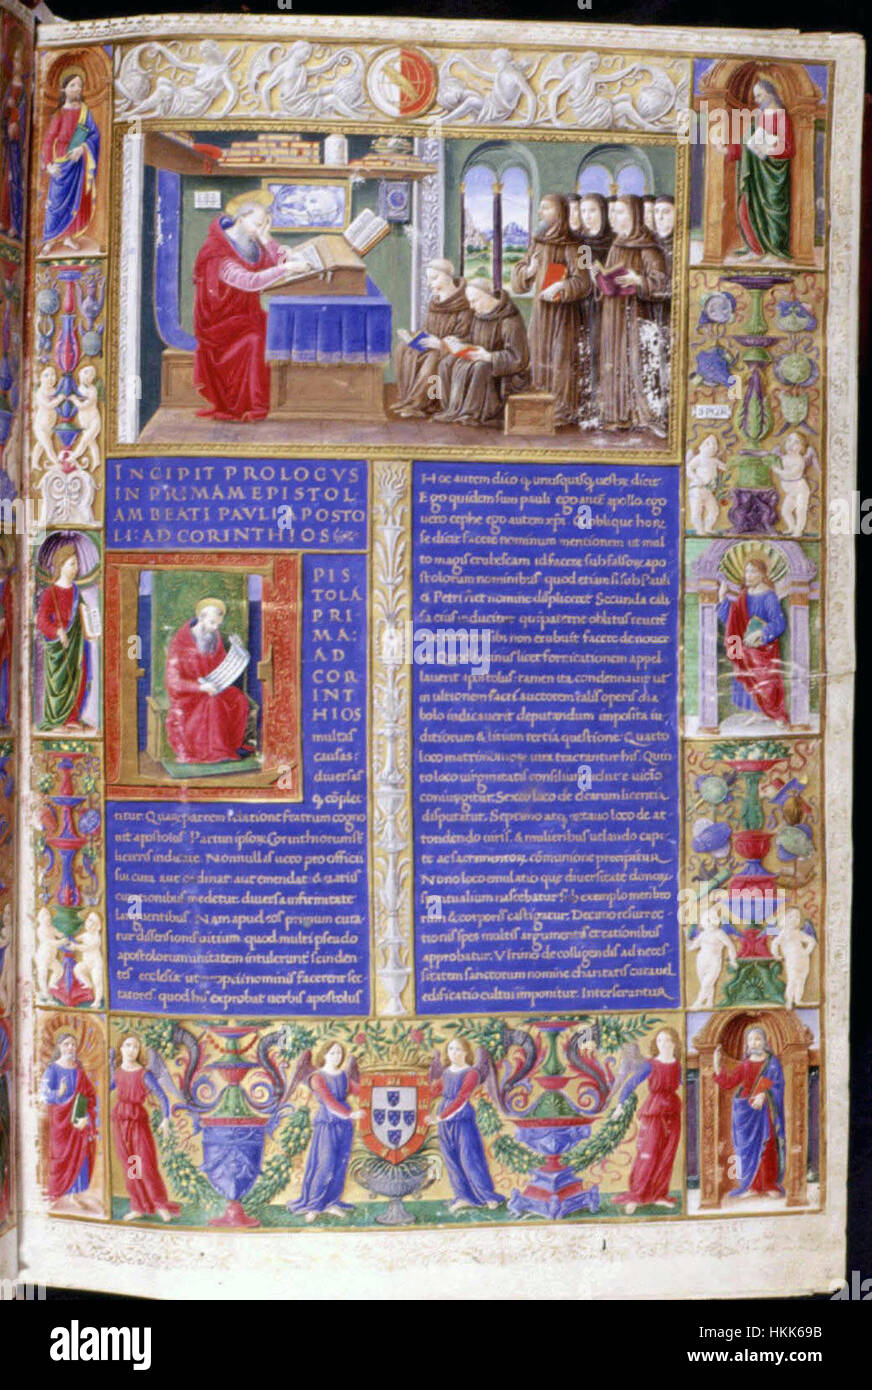 INCIPIT PROLOGVS
IN PRIMAM EPISTOL
AM BEATI PAVLI APOSTO
LI: AD CORINTHIOS
PIS
TOLA
PRI
MA:
AD
COR
INT
HIOS
multas
causas:
diversas
cōplec
titur. Quar partem
nit apostolos Partim ipsor Corinthiorum
licteris indicate. Nonnullas vero pro officii
sui cura aut ordinat aut emendat &
languentibus Nam apud eos primum cura
tur dissensionis vitium quod multi pseudo
apostolorum unitatem intulerunt scinden
tes ecclesiā ut nominis facerent sec
tatores quod his exprobat verbis apostolus
Hoc autem dico q unusquisq vestrū dicit.
Ego quidem sum pauli ego apollo. ego
vero cephe ego autem xpi. Oblique
se dicit facere nominum mentionem ut mul
to magis erubescant id facere sub falsor apo
stolorum nominibus quod etiam si sub Pauli
& Petri fiet nomine displiceret. Secunda
non erubuit facere de nouer
licet fornicationem appel
laverit apostolus: tamen ita condemnavit ut
in ultionem facti auctorem talis operis dia
bolo indicaverit deputandum imposita iu
diciorum & litium tertia questione Quarto
loco matrimoniorum iura tractantur his. Quin
to loco virginitatis consilium
coniungitur. Sexto loco de escarum licentia
disputatur. Septimo atq octavo loco de at
tondendo viris. & mulieribus velando capi
te ac sacramentor comunione precipitur
Nono loco emulatio que diversitate donor
spiritualium nascebatur sub exemplo membro
rum & corporis castigatur. Decimo resurrec
tionis spes multis argumentis & rationibus
approbatur. Vltimo de colligendis ad neces
sitatem sanctorum nomine charitatis
edificatio cultui imponitur. Interseruntur
SPQR
alamy
a
a
alamy
Image ID: HKK69B
www.alamy.com